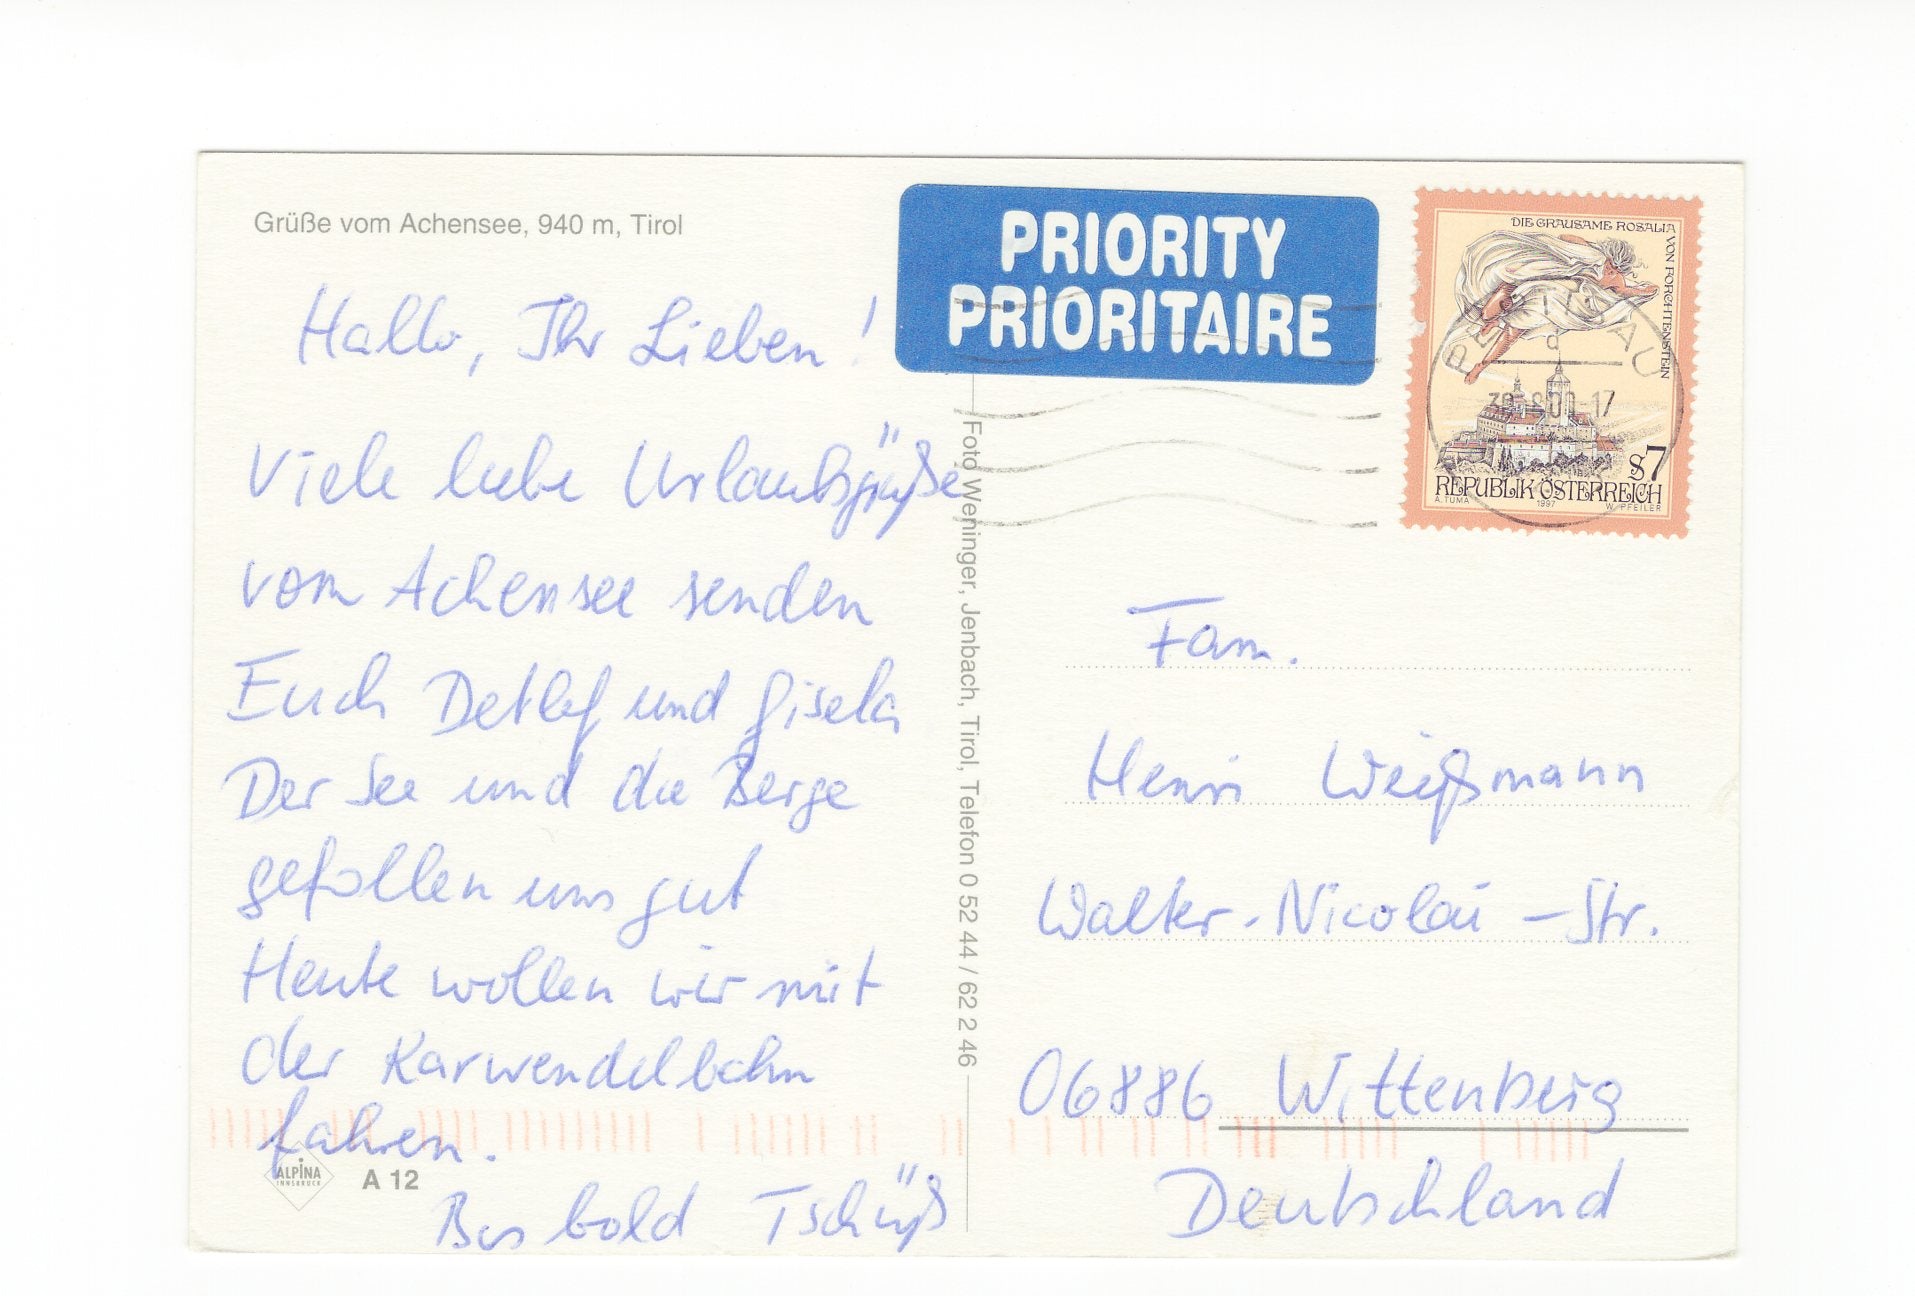 Grüße vom Achensee, 940 m, Tirol
Hallo, Ihr Lieben!
Viele liebe Urlaubsgrüße
vom Achensee senden
Euch Detlef und Gisela
Der See und die Berge
gefallen uns gut
Heute wollen wir mit
der Karwendelbahn
fahren.
Bis bald Tschüß
ALPINA
INNSBRUCK
A 12
Foto Weninger, Jenbach, Tirol, Telefon 0 52 44 / 62 2 46
PRIORITY
PRIORITAIRE
DIE GRAUSAME ROSALIA
VON FORCHTENSTEIN
PERTISAU
a
-17
S7
REPUBLIK ÖSTERREICH
A. TUMA 1997 W. PFEILER
Fam.
Henri Weißmann
Walter-Nicolai-Str.
06886 Wittenberg
Deutschland